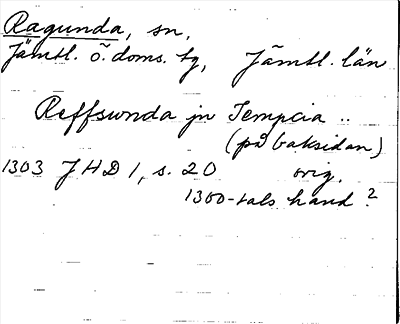 Ragunda, sn,
Jämtl. ö. doms. tg, Jämtl. län
Reffswnda jn Tempcia ..
(på baksidan)
1303 JHD 1, s. 20 orig.
1300-tals hand?